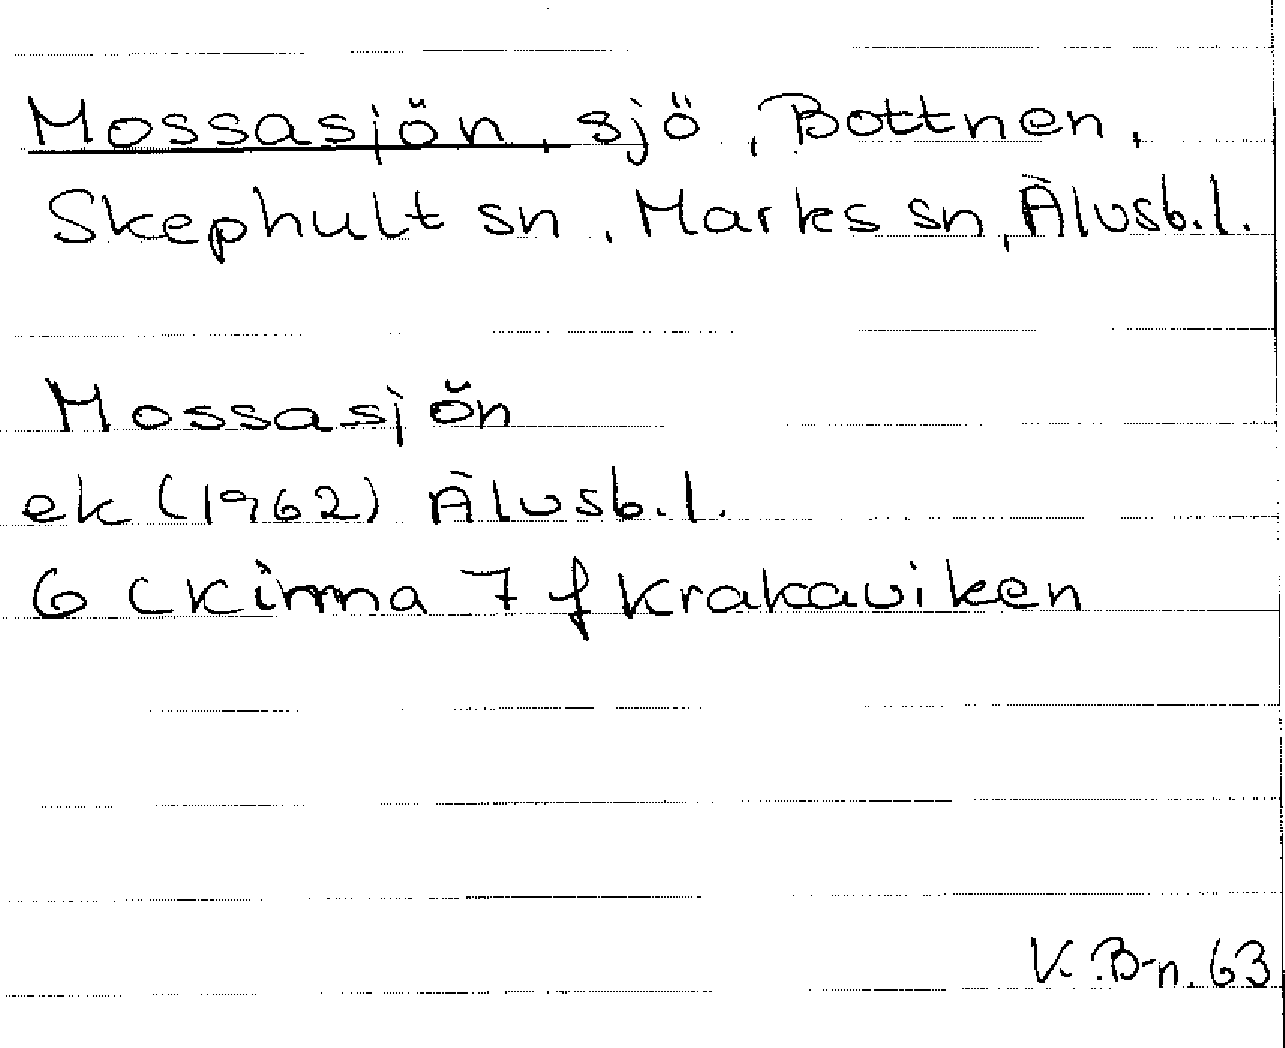 Mossasjön, sjö, Bottnen,
Skephult sn, Marks sn, Älvsb.l.
Mossasjön
ek (1962) Älvsb.l.
6 C Kinna 7 f Krakaviken
K.B-n. 63